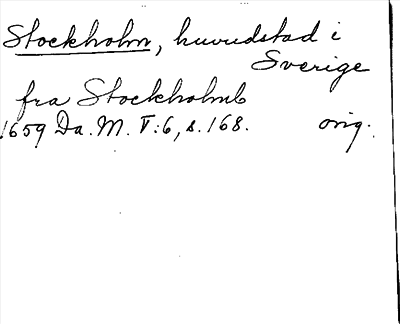 Stockholm, huvudstad i
Sverige
fra Stockholmb
1659 Da. M. V:6, s. 168. orig.